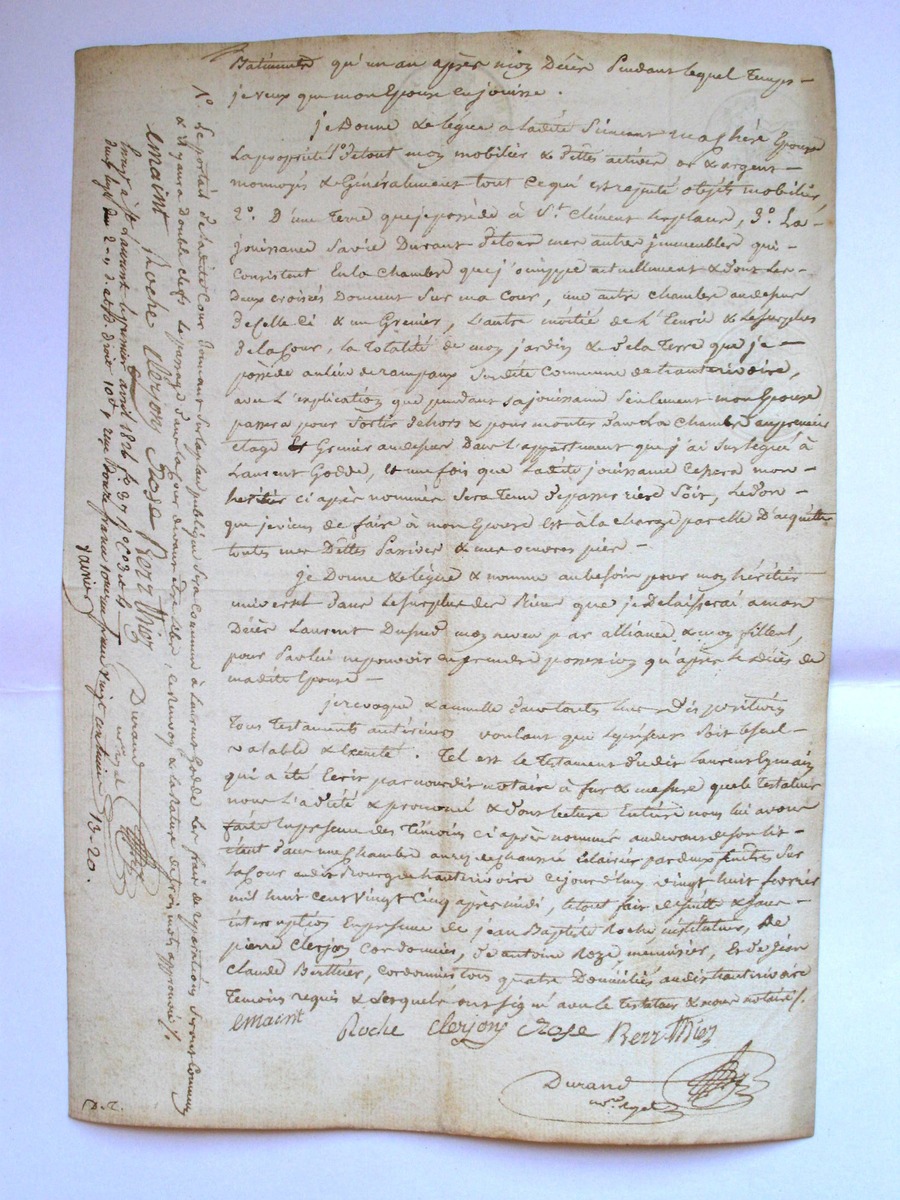 Batiments qu'un an après mon Décès Pendant lequel Temps -
je veux que mon Epouse en jouisse .
je Donne & legue a ladite Epouse
la propriété 1º de tout mon mobilier & Dettes actives or & argent -
monnoyés & Généralement tout ce qui est réputé objets mobilier,
2º. D'une Terre que je possède à St. Clément les places, 3º. La
jouissance Sa vie Durant de tous mes autres jmmeubles qui -
Consistent En la chambre que j'occuppe actuellement & dont les -
Deux croisées Donnent Sur ma Cour, une autre chambre au dessus
de celle ci & un Grenier, L'autre moitié de L'Ecurie & le surplus
de la Cour, la Totalité de mon jardin & de la Terre que je -
possède au lieu de rampaux Susdite Commune de hauterivoire,
avec L'explication que pendant sa jouissance Seulement mon Epouse
passera pour Sortir dehors & pour monter dans La chambre au premier
étage & Grenier au dessus Dans L'appartement que j'ai Sus légué à
Laurent Godde, & une fois que Ladite jouissance Cessera mon -
héritier ci après nommé Sera Tenu de passer rière Soir, le Don -
que je viens de faire à mon Epouse est à la charge par elle D'acquitter
toutes mes Dettes Passives & mes oeuvres pies -
je Donne & legue & nomme au besoin pour mon héritier
universel dans le surplus des Biens que je delaisserai a mon
Décès Laurent mon neveu par alliance & mon filleul,
pour Par lui ne pouvoir en prendre possession qu'après le décès de
madite Epouse -
je revoque & annulle dans toutes leurs dispositions
tous Testaments antérieurs voulant que le présent Soit le Seul -
valable & Exécuté . Tel est le Testament dudit Laurent
qui a été Ecrit par nous dit notaire à fur & mesure que le Testateur
nous L'a dicté & prononcé & dont lecture Entière nous lui avons
faite En présence des Témoins ci après nommés au devant de son lit
étant dans une Chambre au rez de chaussée Eclairée par deux fenêtres Sur
la Cour au dit Bourg de hauterivoire cejourd'huy vingt huit fevrier
mil huit cent vingt Cinq après midi, le tout fait de suitte & sans -
interruption En présence de jean Baptiste Roche instituteur, De
pierre Clerjon Cordonnier, d'antoine Roze menuisier, & de
Claude Berthier, cordonnier tous quatre Domiciliés au dit hauterivoire
Temoins requis & Lesquels ont signé avec le Testateur & nous notaire /.
emaint Roche Clerjon Rose Berthier
Durand
nre. royal
Nª. Le portail de ladite Cour Donnant Sur la place publique Sera Commun à Laurent Godde Les frais de réparations Seront Communs
& il y aura double clefs le passage dans la Cour devant être libre , & la rature de trois mots approuvés /.
emaint Roche Clerjon Rose Berthier Durand
nre. royal
Enreg. à St. Laurent le premier avril 1826 fº. 37
droit 10 f. reçu Onze francs
janvier 13-20.